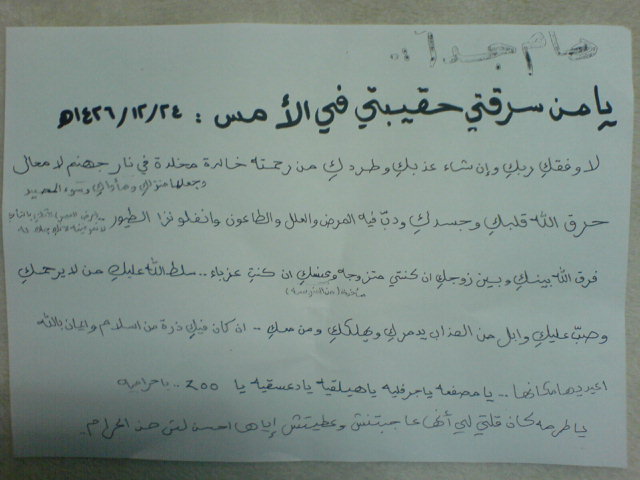 هام جداً ..
يا من سرقتي حقيبتي في الأمس : ١٤٢٦/١٢/٢٤هـ
لا وفقكِ ربكِ وإن شاء عذبكِ وطردكِ من رحمته خالدة مخلدة في نار جهنم لا محال
وجعلها منزلكِ ومأواكِ وسوء المصير
حرق الله قلبكِ وجسدكِ ودبّ فيه المرض والعلل والطاعون وانفلونزا الطيور ..
فرق الله بينكِ وبين زوجكِ ان كنتي متزوجه وان كنتِ عزباء .. سلط الله عليكِ من لا يرحمكِ
وصبّ عليكِ وابل من العذاب يدمركِ ويهلككِ ومن معكِ .. ان كان فيكِ ذرة من اسلام وايمان بالله
اعيديها مكانها .. يا مصفعه يا جرفليه يا هيلقيه يا دعسقيه يا .. يا حراميه
يا طرمه كان قلتي لي أنها عاجبتنش وعطيتش إياها احسن لش من الحرام ..